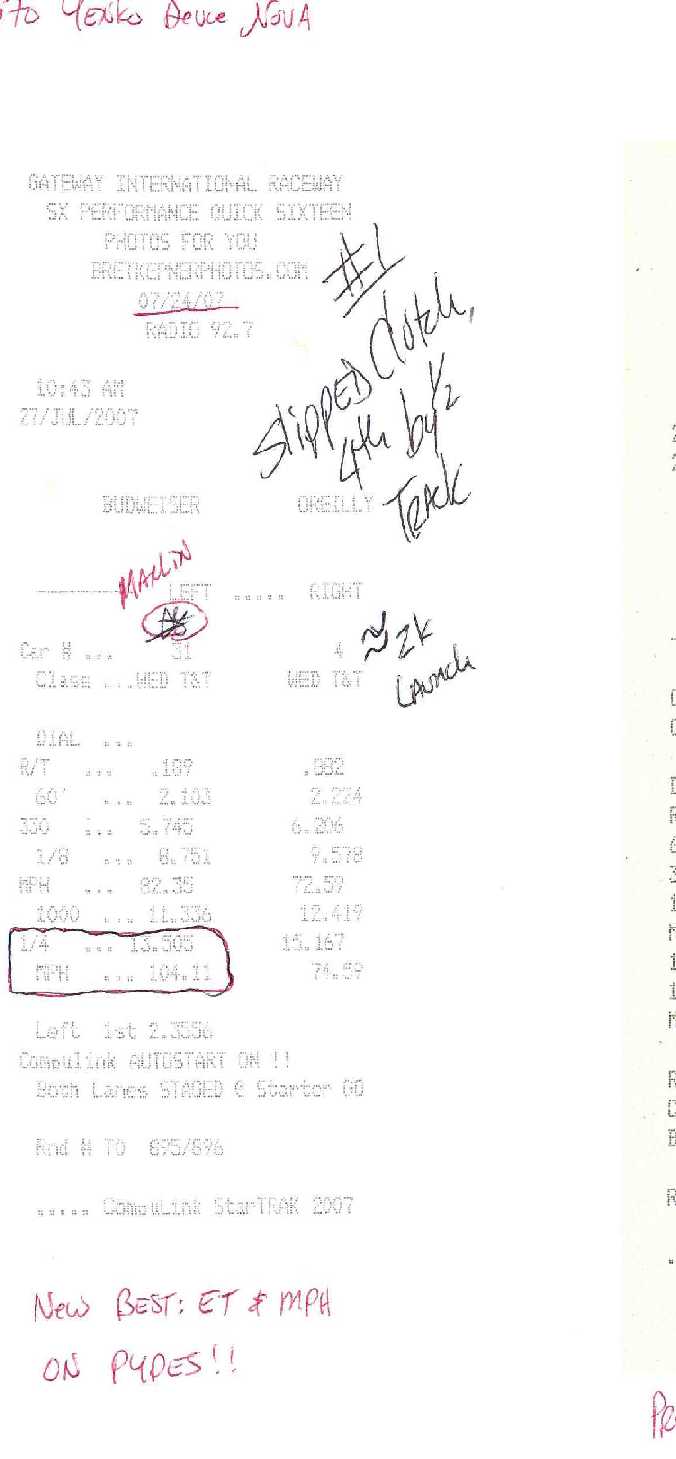 YENKO DEUCE NOVA
GATEWAY INTERNATIONAL RACEWAY
SX PERFORMANCE QUICK SIXTEEN
PHOTOS FOR YOU
07/24/07
RADIO 92.7
#1
SLIPPED Clutch,
4th by 1/2
TRACK
10:43 AM
27/JUL/2007
BUDWEISER OREILLY
MALLIN
LEFT ..... RIGHT
Car # ... 31 4
Class ...WED T&T WED T&T
≈ 2K
LAUNCH
DIAL ...
R/T ... .189 .382
60' ... 2.103 2.224
330 ... 5.745 6.206
1/8 ... 8.751 9.578
MPH ... 82.35 72.59
1000 ... 11.336 12.419
1/4 ... 13.505 15.167
MPH ... 104.11 74.59
Left 1st 2.3556
Compulink AUTOSTART ON !!
Both Lanes STAGED @ Starter GO
Rnd # TO 895/896
..... CompuLink StarTRAK 2007
NEW BEST: ET & MPH
ON PYPES!!